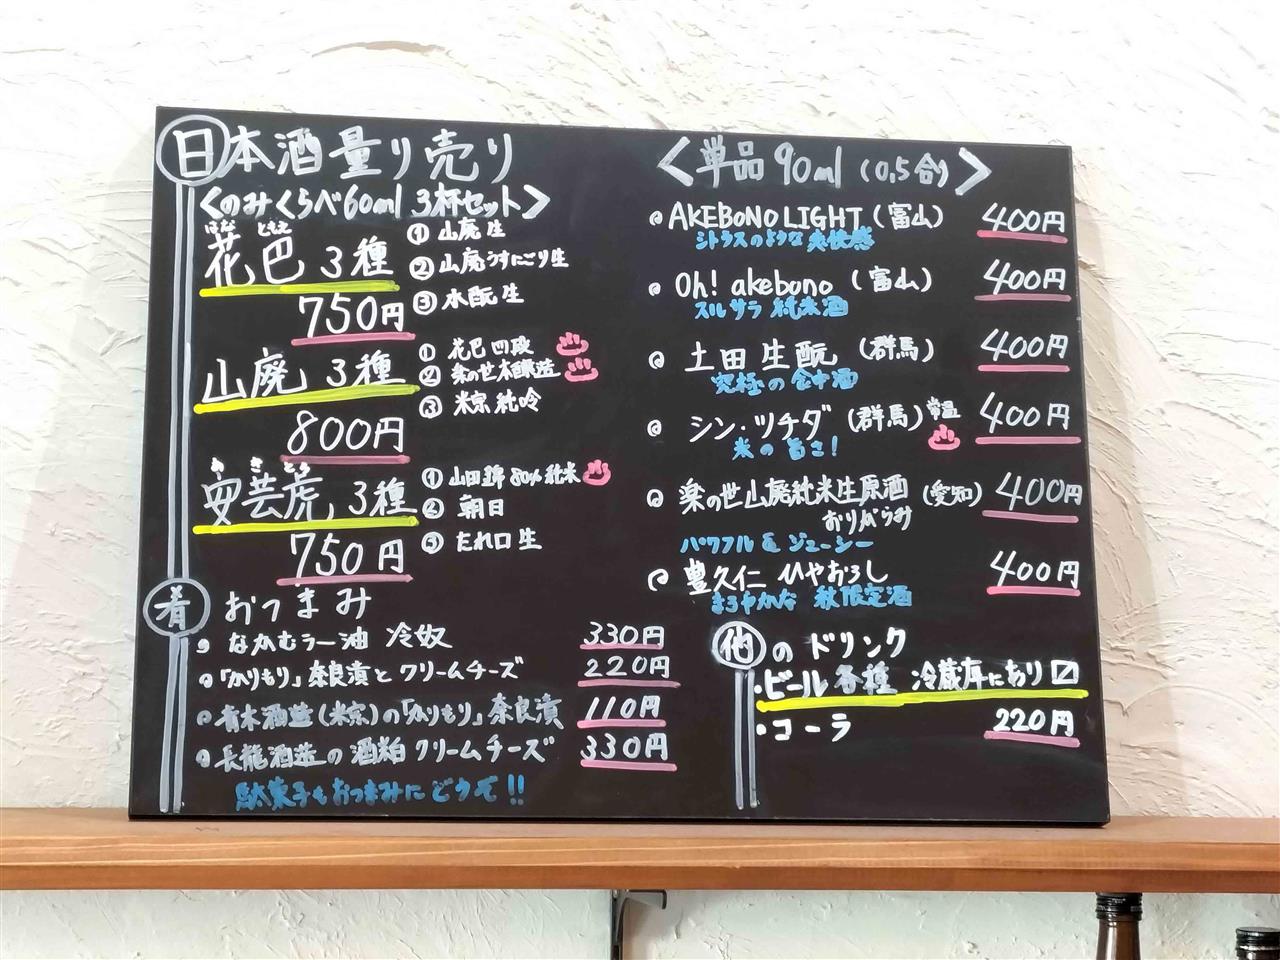 日本酒量り売り
<のみくらべ60ml 3杯セット>
はな ともえ
花巴 3種
750円
① 山廃 生
② 山廃うすにごり生
③ 水酛 生
山廃 3種
800円
① 花巴 四段
② 楽の世本醸造
③ 米宗 純吟
あ き とら
安芸虎 3種
750円
① 山田錦80%純米
② 朝日
③ たれ口 生
肴 おつまみ
なかむラー油 冷奴 330円
「かりもり」奈良漬とクリームチーズ 220円
青木酒造(米宗)の「かりもり」奈良漬 110円
長龍酒造の酒粕クリームチーズ 330円
駄菓子もおつまみにどうぞ!!
<単品 90ml (0.5合)>
AKEBONO LIGHT (富山) 400円
シトラスのような爽快感
Oh! akebono (富山) 400円
スルサラ純米酒
土田 生酛 (群馬) 400円
究極の食中酒
シン・ツチダ (群馬) 常温 400円
米の旨さ!
楽の世山廃純米生原酒 (愛知) 400円
おりがらみ
パワフル & ジューシー
豊久仁 ひやおろし 400円
まろやかな 秋限定酒
他のドリンク
・ビール各種 冷蔵庫にあり〼
・コーラ 220円